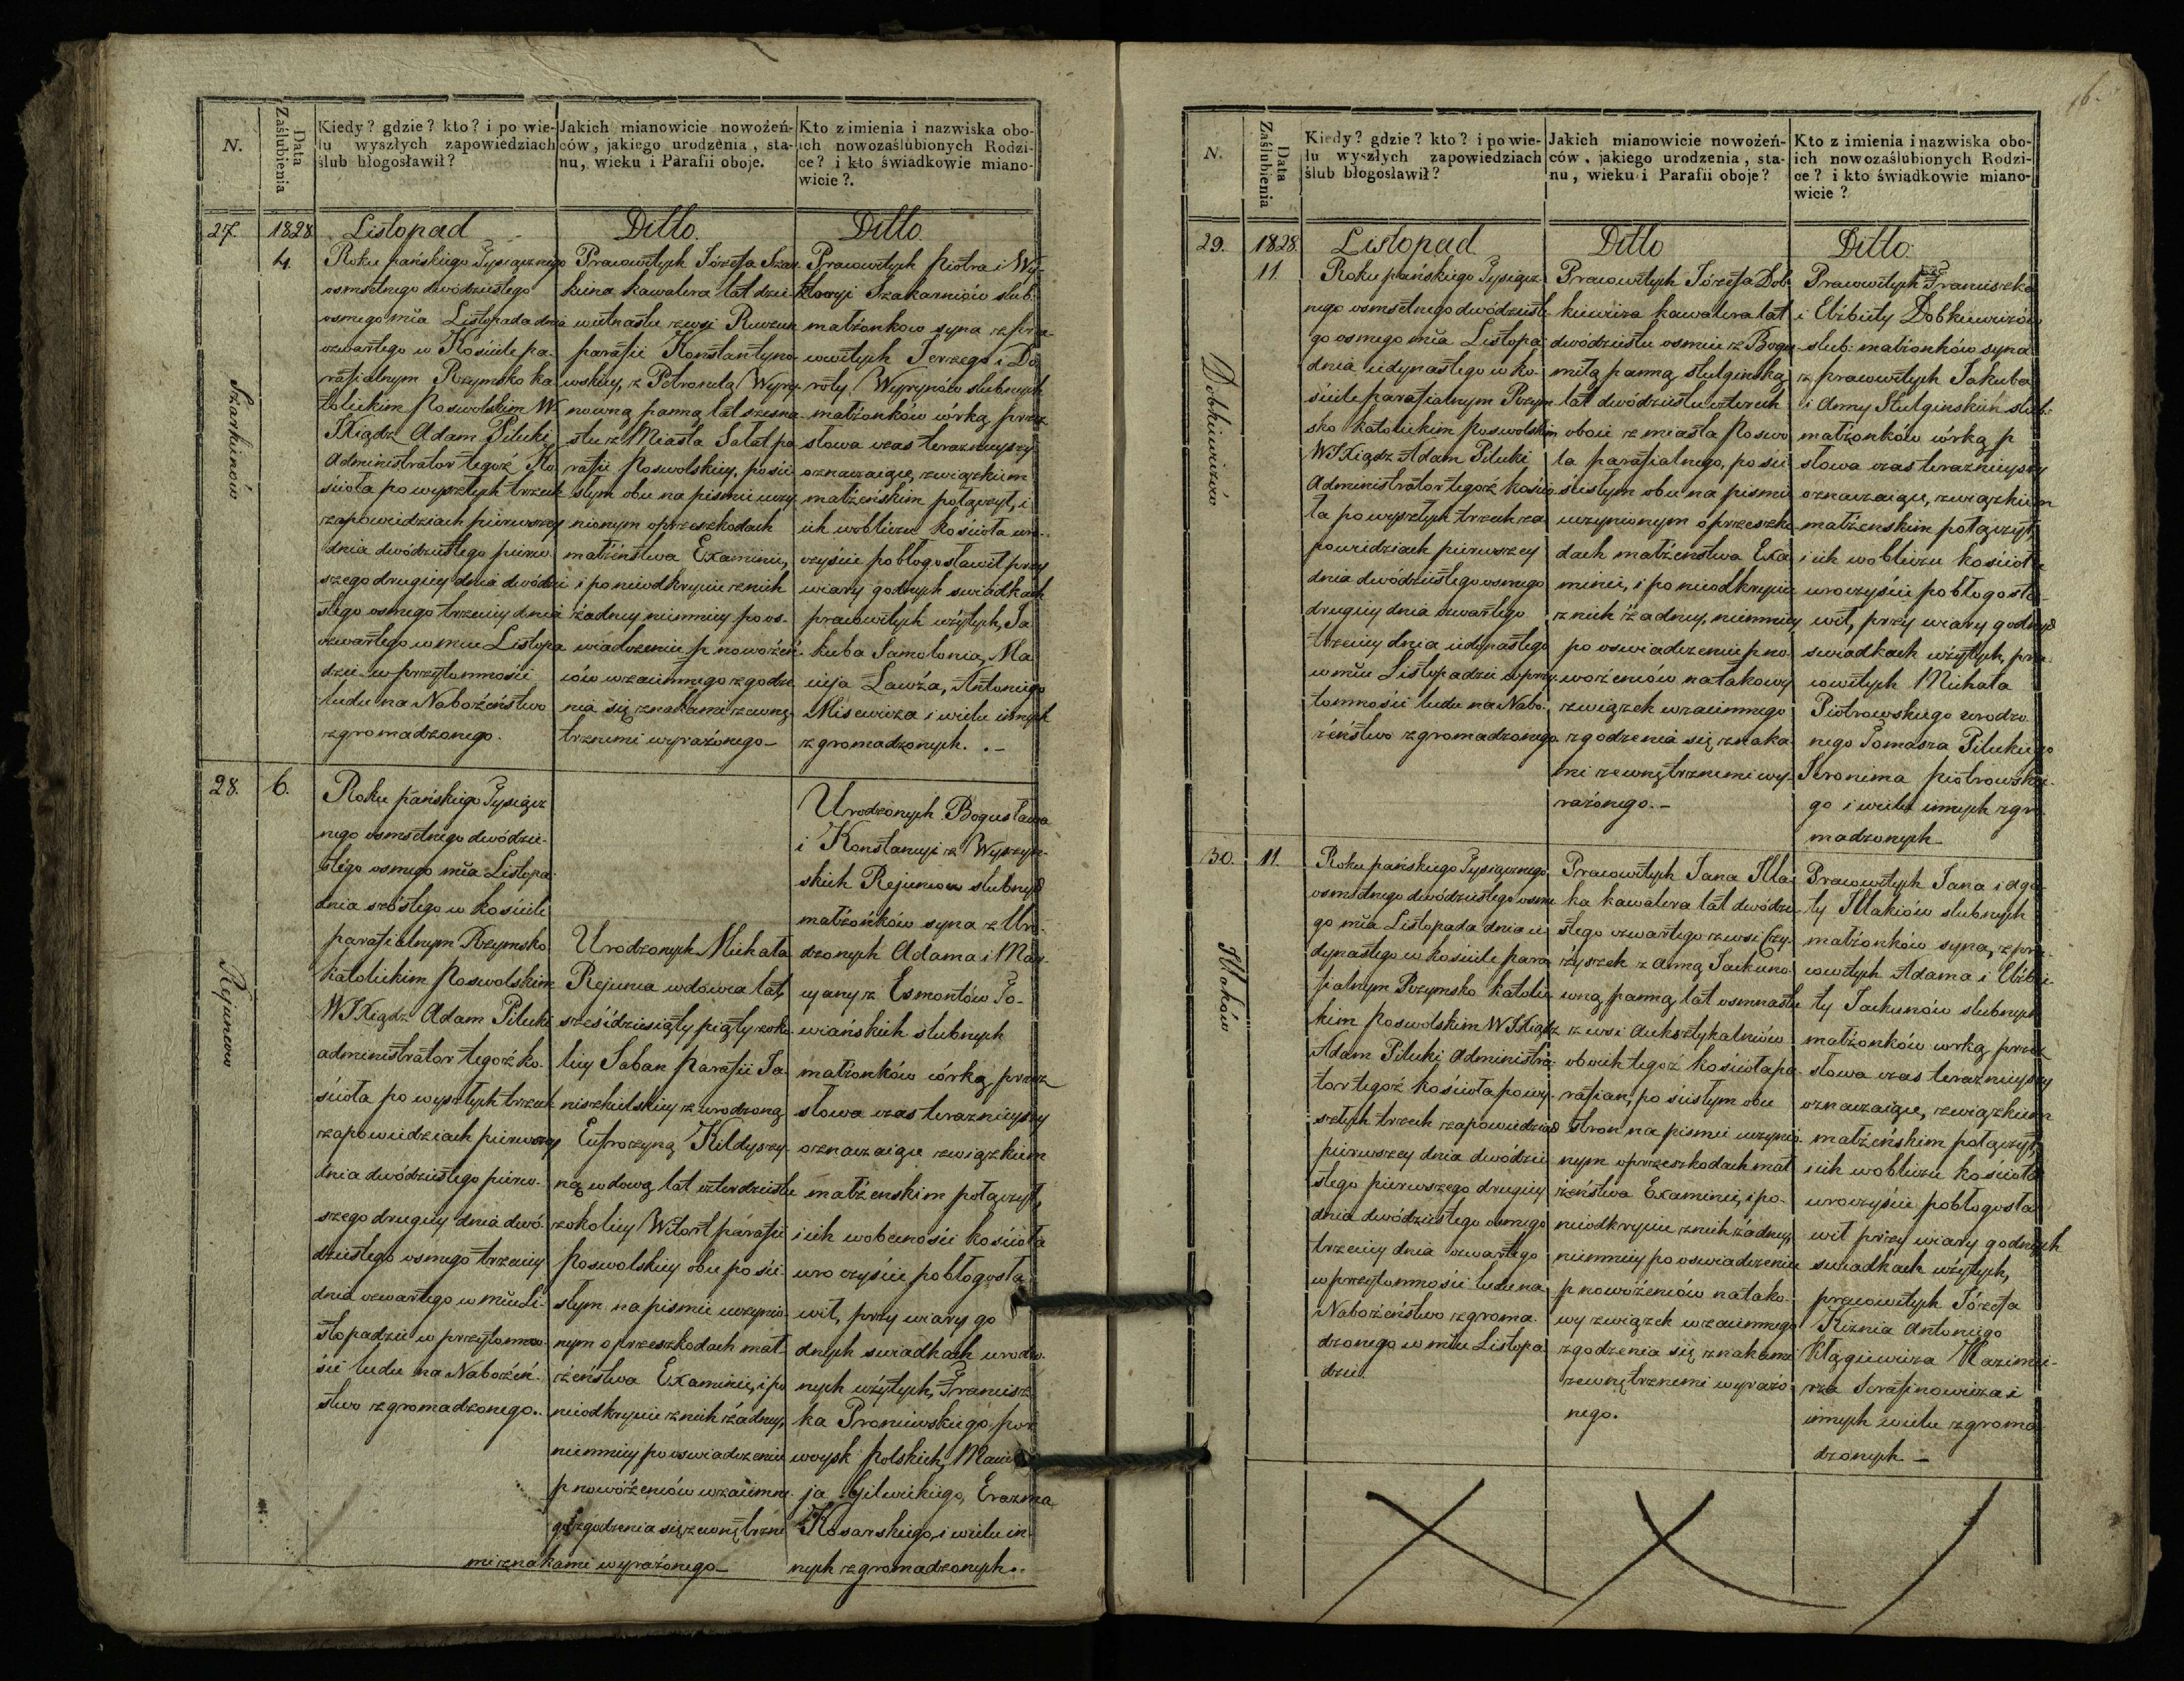 N.
Data
Zaślubienia
Kiedy? gdzie? kto? i po wie-
lu wyszłych zapowiedziach
ślub błogosławił?
Jakich mianowicie nowożeń-
ców, jakiego urodzenia, sta-
nu, wieku i Parafii oboje.
Kto z imienia i nazwiska obo-
ich nowozaślubionych Rodzi-
ce? i kto świadkowie miano-
wicie?.
27.
1828
4.
Szarkinów
Listopad
Roku pańskiego Tysiącznego
osmsetnego dwódziestego
osmego mca Listopada dnia
czwartego w Kościele pa-
rafialnym Rzymsko ka
tolickim Poswolskim W.
JXiądz Adam Pilucki
Administrator tegoż Ko
ścioła po wyszłych trzech
zapowiedziach pierwszey
dnia dwódziestego pierw-
szego drugiey dnia dwódzie
stego osmego trzeciey dnia
czwartego w mcu Listopa
dzie w przytomności
ludu na Nabożeństwo
zgromadzonego.
Ditto.
Pracowitych Józefa Szar
kina kawalera lat dzie
wietnastu z wsi
parafii Konstantyno
wskiey, z Petronelą Wyry
nowną panną lat szesna
stu z Miasta Sałat pa
rafii Poswolskiey, po ści
słym obu na pismie uczy
nionym o przeszkodach
małżeństwa Examinie,
i po nieodkryciu z nich
żadney niemniey po os-
wiadczeniu p nowożeń-
ców wzaiemnego zgodze
nia się znakami zewnę
trznemi wyrażonego _
Ditto
Pracowitych Piotra i Wi-
ktoryi Szakarniów slub.
małżonkow syna z pra
cowitych Jerzego i Do
roty Wyrynów slubnych
małżonków córką przez
słowa czas teraznieyszy
oznaczaiące, związkiem
małżeńskim połączył, i
ich w obliczu Kościoła uro-
czyście pobłogosławił przy
wiary godnych swiadkach
pracowitych użytych, Ja
kuba Samolonia, Ma
cieja Lawża, Antoniego
Misewicza i wielu innych
zgromadzonych. . _
28.
6.
Rejuniów
Roku pańskiego Tysiącz
nego osmsetnego dwódzie-
stego osmego mca Listopa
dnia szóstego w kościele
parafialnym Rzymsko
katolickim Poswolskim
WJXiądz Adam Pilucki
administrator tegoż ko-
ścioła po wyszłych trzech
zapowiedziach pierwszey
dnia dwódziestego pierw-
szego drugiey dnia dwó-
dziestego osmego trzeciey
dnia czwartego w mcu Li-
stopadzie w przytomno
ści ludu na Nabożeń-
stwo zgromadzonego..
Urodzonych Michała
Rejunia wdowca lat
sześćdziesiąty piąty z oko
licy Saban Parafii Ja-
niszkielskiey z urodzoną
Eufrozyną Kildyszy-
ną wdową lat czterdziestu
z okolicy Witort parafii
Poswolskiey obu po ści-
słym na pismie uczynio-
nym o przeszkodach mał
żeństwa Examinie, i po
nieodkryciu z nich żadney,
niemniey po oswiadczeniu
p nowożeniów wzaiemne-
go zgodzenia się zewnętrzne
mi znakami wyrażonego _
Urodzonych Bogusława
i Konstancyi z Wyrzyn-
skich Rejuniow slubnych
małżońków syna z Uro-
dzonych Adama i Mar-
cyany z Esmontów Jo-
wiańskich slubnych
małżonków córką, przez
słowa czas teraznieyszy
oznaczaiące związkiem
małżenskim połączył,
i ich w obecności kościoła
uroczyście pobłogosła
wił, przy wiary go
dnych swiadkach urodzo-
nych użytych, Francisz
ka Proniewskiego por
woysk Polskich, Macie
ja Gilwickiego, Erazma
Kosarskiego, i wielu in-
nych zgromadzonych..
16.
N.
Data
Zaślubienia
Kiedy? gdzie? kto? i po wie-
lu wyszłych zapowiedziach
ślub błogosławił?
Jakich mianowicie nowożeń-
ców, jakiego urodzenia, sta-
nu, wieku i Parafii oboje?
Kto z imienia i nazwiska obo-
ich nowozaślubionych Rodzi-
ce? i kto świadkowie miano-
wicie?
29.
1828.
11.
Dobkiewiczów
Listopad
Roku pańskiego Tysiącz
nego osmsetnego dwódzieste
go osmego mca Listopa
dnia iedynastego w ko-
ściele parafialnym Rzym
sko katolickim Poswolskim
WJXiądz Adam Pilucki
Administrator tegoż kościo
ła po wyszłych trzech za
powiedziach pierwszey
dnia dwódziestego osmego
drugiey dnia czwartego
trzeciey dnia iedynastego
w mcu Listopadzie w przy
tomności ludu na Nabo-
żeństwo zgromadzonego
Ditto
Pracowitych Józefa Dob-
kiewicza kawalera lat
dwódziestu osmiu z Bogu-
miłą panną stulginską
lat dwódziestu czterech
oboie z miasta Poswo
la parafialnego, po sci
ścisłym obu na pismie
uczynionym o przeszko
dach małżeństwa Exa
minie, i po nieodkryciu
z nich żadney, niemniey
po oswiadczeniu p no-
wożeniów na takowy
związek wzaiemnego
zgodzenia się znaka
mi zewnętrznemi wy-
rażonego. _
Ditto.
Pracowitych Franciszka
i Elżbiety Dobkiewiczów
slub. małżonków syna
z pracowitych Jakuba
i Anny Stulginskich slub:
małżonków córką p
słowa czas teraznieyszy
oznaczaiące, związkiem
małżenskim połączył,
i ich w obliczu kościoła
uroczyście pobłogosła-
wił, przy wiary godnych
swiadkach użytych, pra-
cowitych Michała
Piotrowskiego urodzo-
nego Tomasza Piluckiego
Jeronima Piotrowskie-
go i wielu innych zgro
madzonych _
30.
11.
Illaków
Roku pańskiego Tysiącznego
osmsetnego dwódziestego osme
go mca Listopada dnia ie
dynastego w kościele para
fialnym Rzymsko katolic
kim Poswolskim WJXiądz
Adam Pilucki Administra-
tor tegoż kościoła po wy-
szłych trzech zapowiedziach
pierwszey dnia dwódzie
stego pierwszego drugiey
dnia dwódziestego osmego
trzeciey dnia czwartego
w przytomności ludu na
Nabożeństwo zgroma-
dzonego w mcu Listopa
dzie.
Pracowitych Jana Illa-
ka kawalera lat dwódzie-
stego czwartego z wsi Czy-
żyszek z Anną Jackuno
wną panną, lat osmnastu
z wsi Auksztykalniów
oboich tegoż kościoła pa-
rafian, po ścisłym obu
stron na pismie uczynio
nym o przeszkodach mał
żeństwa Examinie, i po-
nieodkryciu z nich żadney,
niemniey po oswiadczeniu
p nowożeniów na tako-
wy związek wzaiemnego
zgodzenia się znakami
zewnętrznemi wyrażo
nego.
Pracowitych Jana i Aga-
ty Illaków slubnych
małżonków syna, z pra-
cowitych Adama i Elżbie-
ty Jackunów slubnych
małżonków córką przez
słowa czas teraznieyszy
oznaczaiące, związkiem
małżeńskim połączył,
i ich w obliczu kościoła
uroczyście pobłogosła
wił przy wiary godnych
swiadkach użytych,
pracowitych Józefa
Kiznia Antoniego
Klągiewicza Kazimie-
rza Serafinowicza i
innych wielu zgroma
dzonych. _